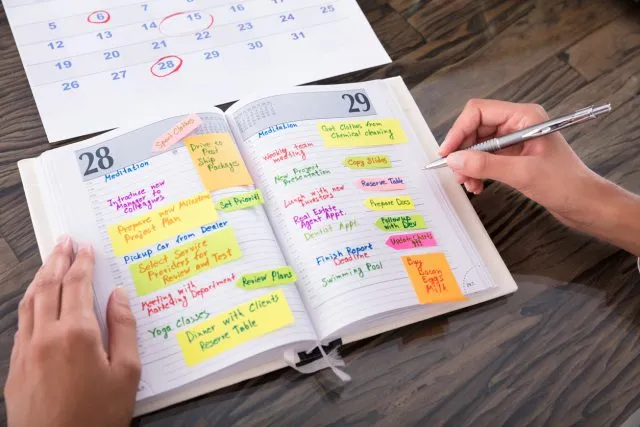 5 6 7
12 13 14 15 16
19 20 21 22 23 24 25
26 27 28 29 30 31
28
Sport Classes
Meditation
Drive to
Post
Ship
Packages
Introduce new
Manager to
colleagues
Set Priority
Prepare new Milestone
Project Plan
Pickup Car from Dealer
Select Service
Providers for
Review and Test
Meeting with
Marketing Department
Review Plans
Yoga Classes
Dinner with Clients
Reserve Table
29
Meditation
Get Clothes from
Chemical cleaning
Weekly team
meeting
Copy Slides
New Project
Presentation
Reserve Table
Lunch with new
Investors
Prepare Docs
Real Estate
Agent Appt.
Followup
with Dev
Dentist Appt
Update Charts
Finish Report
Deadline
Buy
Bacon
Eggs
Milk
Swimming Pool